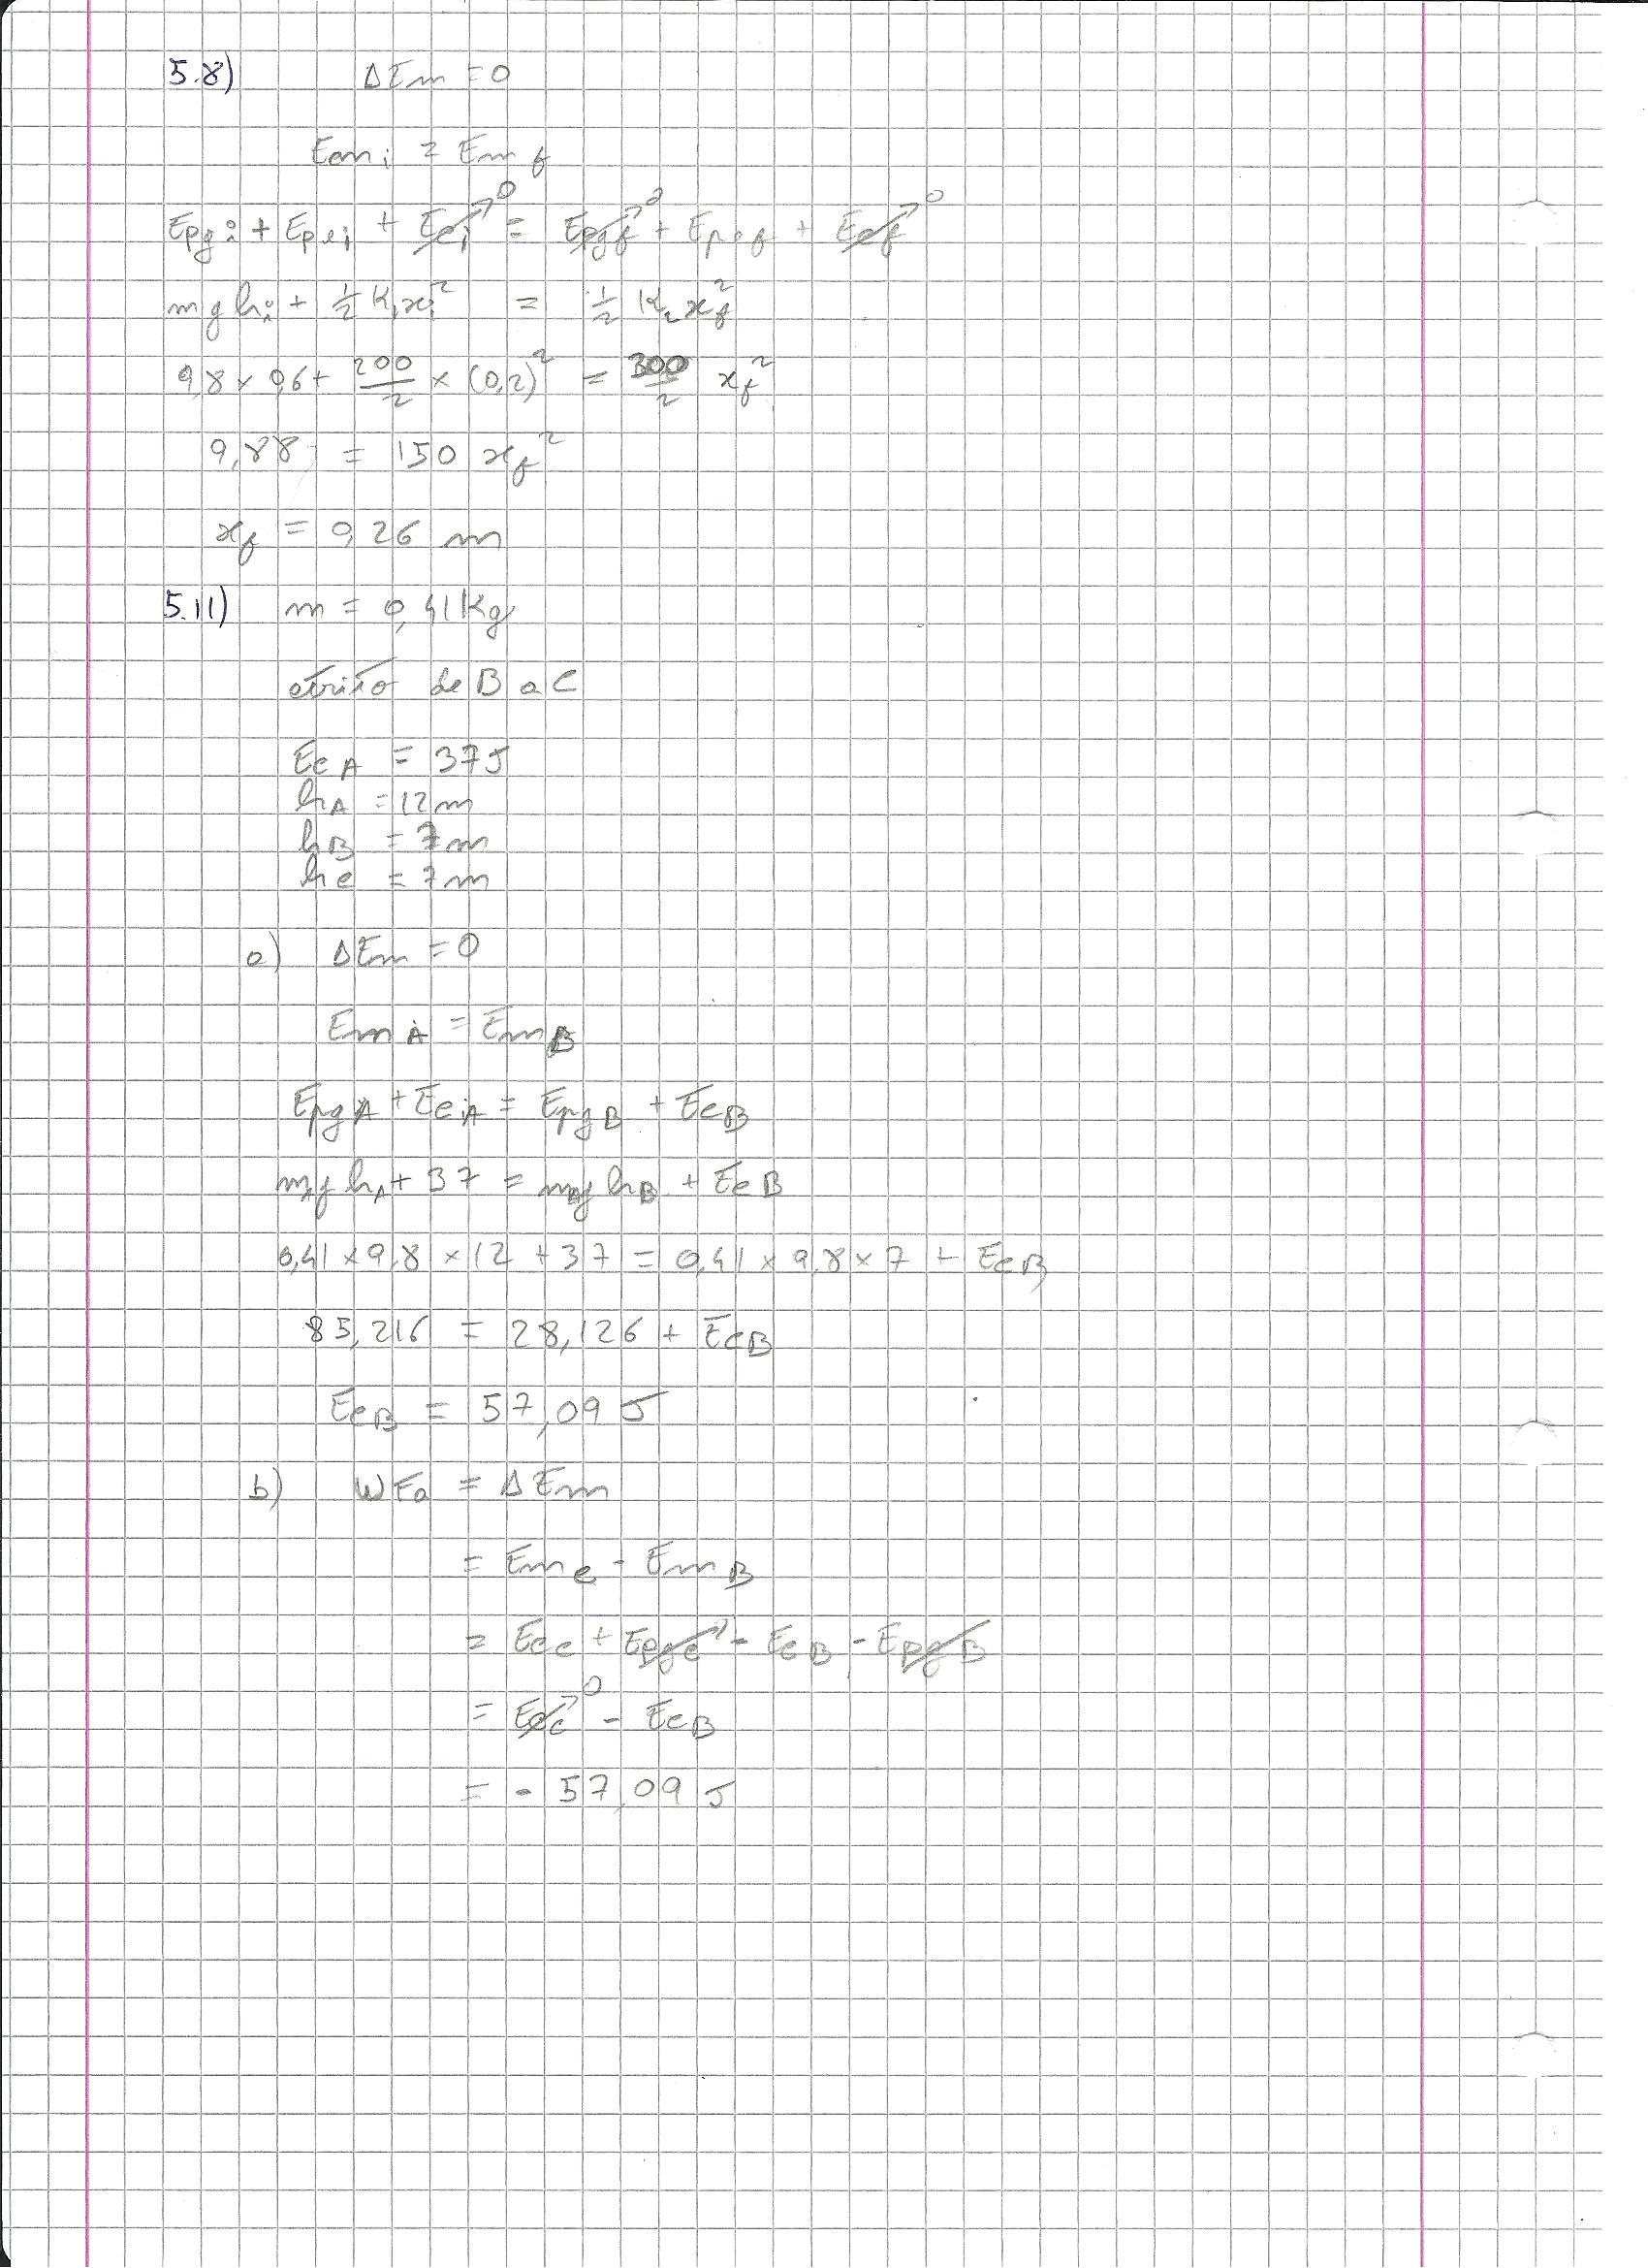 5.8) ΔEm = 0
Emi = Emf
Epgi + Epei + Eci→0 = Epgf→0 + Epef + Ecf→0
mghi + 1/2 K1xi² = 1/2 K2xf²
9,8 × 0,6 + 200/2 × (0,2)² = 300/2 xf²
9,88 = 150 xf²
xf = 0,26 m
5.11) m = 0,41 Kg
atrito de B a C
EcA = 37 J
hA = 12 m
hB = 7 m
hC = 7 m
a) ΔEm = 0
EmA = EmB
EpgA + EcA = EpgB + EcB
mghA + 37 = mghB + EcB
0,41 × 9,8 × 12 + 37 = 0,41 × 9,8 × 7 + EcB
85,216 = 28,126 + EcB
EcB = 57,09 J
b) WFa = ΔEm
= EmC - EmB
= EcC + EpgC - EcB - EpgB
= EcC→0 - EcB
= - 57,09 J